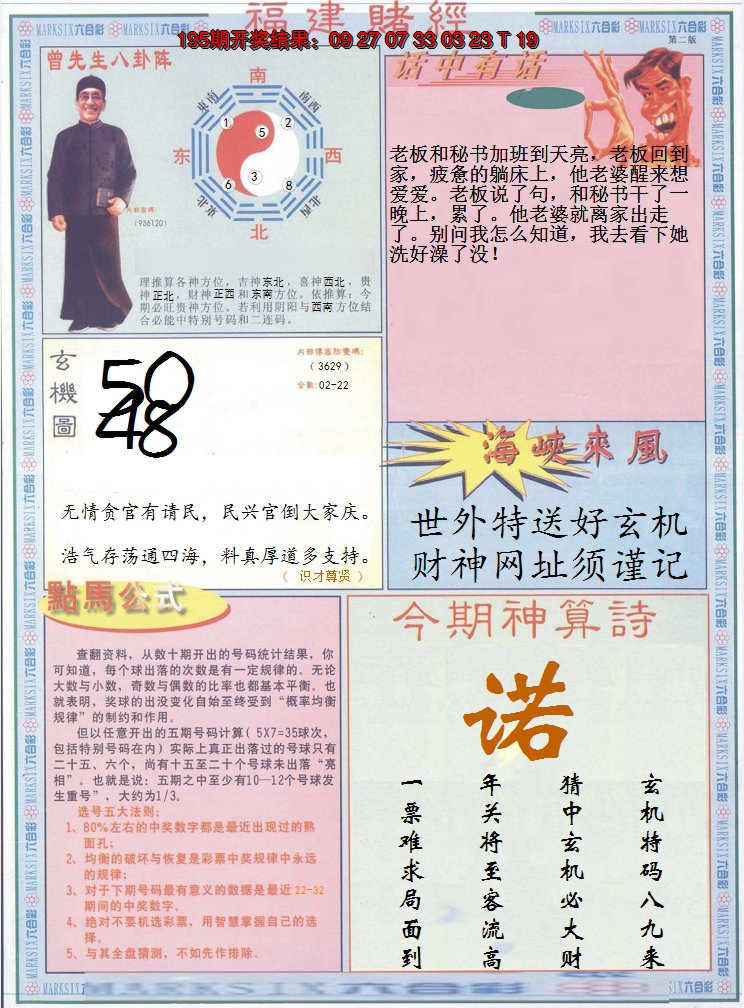 福建賭經
195期开奖结果：09 27 07 33 03 23 T 19
MARKSIX六合彩
第二版
曾先生八卦阵
南
东南
南西
东
西
1
2
5
3
6
8
東北
北西
北
內部密碼:
(936120)
理推算各神方位，吉神东北，喜神西北，贵
神正北，财神正西和东南方位。依推算：今
期必旺贵神方位。若利用阴阳与西南方位结
合必能中特别号码和二连码。
话中有话
老板和秘书加班到天亮，老板回到
家，疲惫的躺床上，他老婆醒来想
爱爱。老板说了句，和秘书干了一
晚上，累了。他老婆就离家出走
了。别问我怎么知道，我去看下她
洗好澡了没！
玄機圖
50
48
(3629)
合数:02-22
无情贪官有请民，民兴官倒大家庆。
浩气存荡通四海，料真厚道多支持。
（ 识才尊贤 ）
海峽來風
世外特送好玄机
财神网址须谨记
點馬公式
查翻资料，从数十期开出的号码统计结果，你
可知道，每个球出落的次数是有一定规律的。无论
大数与小数，奇数与偶数的比率也都基本平衡。也
就表明，奖球的出没变化自始至终受到“概率均衡
规律”的制约和作用。
但以任意开出的五期号码计算( 5X7=35球次，
包括特别号码在内) 实际上真正出落过的号球只有
二十五、六个，尚有十五至二十个号球未出落“亮
相”。也就是说：五期之中至少有10—12个号球发
生重号”，大约为1/3。
选号五大法则：
1、80%左右的中奖数字都是最近出现过的熟
面孔；
2、均衡的破坏与恢复是彩票中奖规律中永远
的规律；
3、对于下期号码最有意义的数据是最近22-32
期间的中奖数字。
4、绝对不要机选彩票，用智慧掌握自己的选
择。
5、与其全盘猜测，不如先作排除。
今期神算詩
诺
玄机特码八九来
猜中玄机必大财
年关将至客流高
一票难求局面到